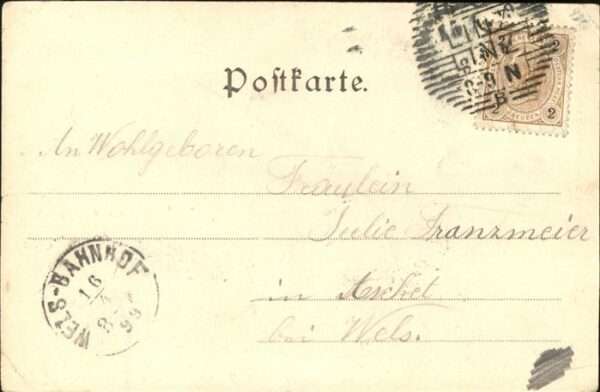 Postkarte.
An Wohlgeboren
Fräulein
Julie Franzmeier
in Aschet
bei Wels.
WELS-BAHNHOF
16
4
99
2
2
2